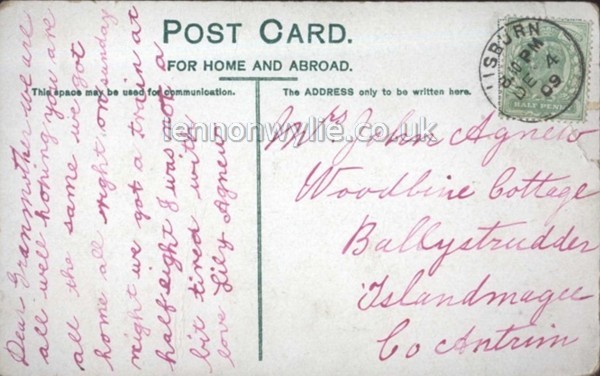 POST CARD.
FOR HOME AND ABROAD.
This space may be used for communication.
The ADDRESS only to be written here.
Dear Granmither we are
all well hoping you are
all the same we got
home all right on sunday
night we got a train at
half eight I was not a
bit tired with
love Lily Agnew
Mrs John Agnew
Woodbine Cottage
Ballystrudder
Islandmagee
Co Antrim
LISBURN
8.15 PM
DE 4
09
HALF PENNY
tennonwylie.co.uk